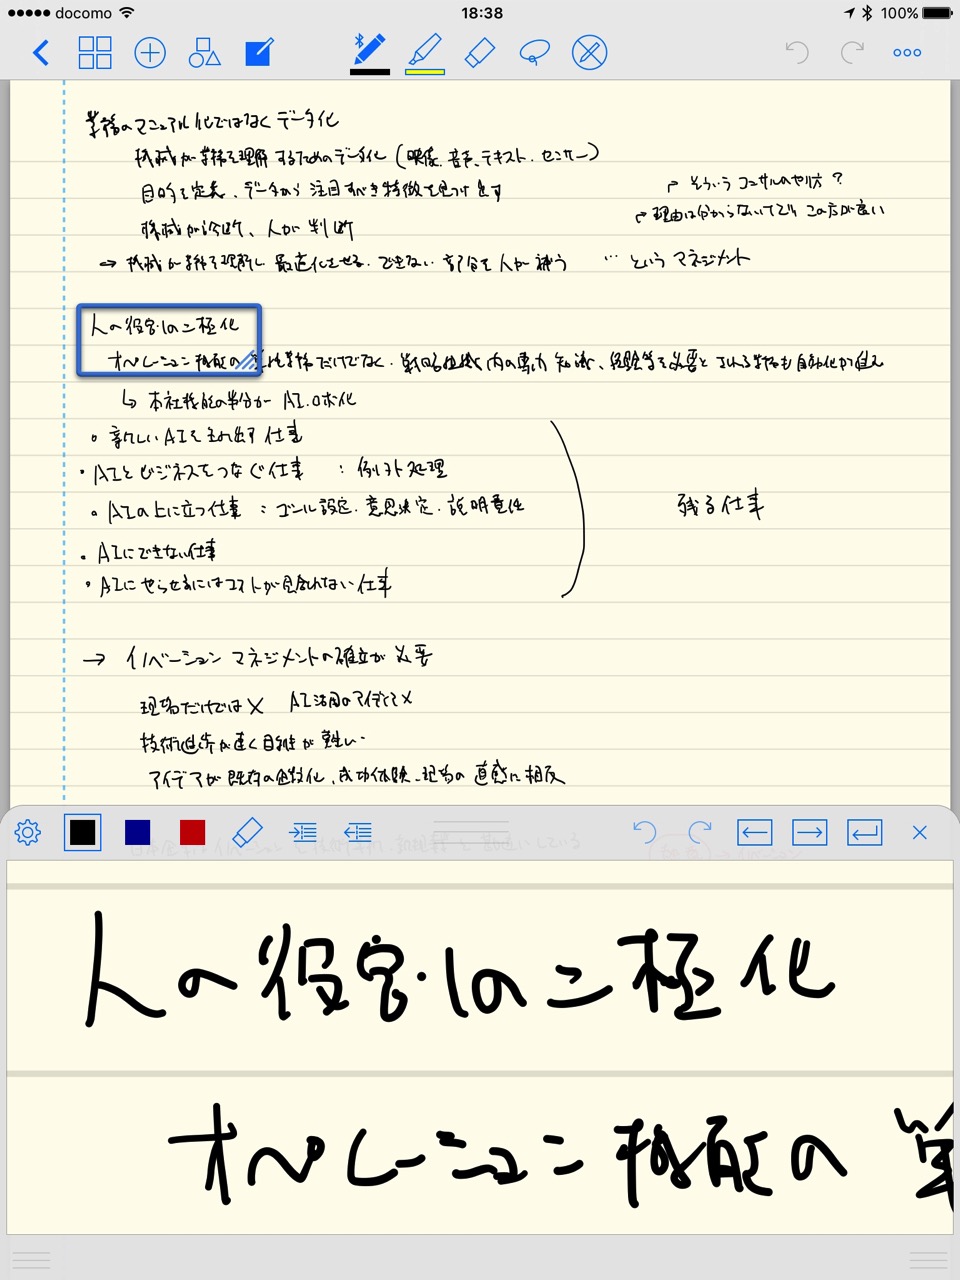 docomo 18:38 100%
業務のマニュアル化ではなくデータ化
機械が業務を理解するためのデータ化 (映像、音声、テキスト、センサー)
目的を定義、データから注目すべき特徴を見つけ出す
そういうコンサルのやり方?
理由は分からないいてでも この方が良い
機械が診断、人が判断
→ 機械が業務を理解し最適化させる、できない部分を人が補う … というマネジメント
人の役割の二極化
オペレーション機能の単純業務だけでなく、戦略組織内の専門知識、経験等を必要とされる業務も自動化が進む
↳ 本社機能の半分が AI、ロボ化
・新しいAIを生み出す仕事
・AIとビジネスをつなぐ仕事 : 例外処理
・AIの上に立つ仕事 : ゴール設定、意思決定、説明責任
残る仕事
・AIにできない仕事
・AIにやらせるにはコストが見合わない仕事
→ イノベーションマネジメントの確立が必要
現場だけでは× AI活用のアイデア×
技術進歩が速く目利が難しい
アイデアが既存の 化、成功体験、現場の直感に相反
人の役割の二極化
オペレーション機能の単